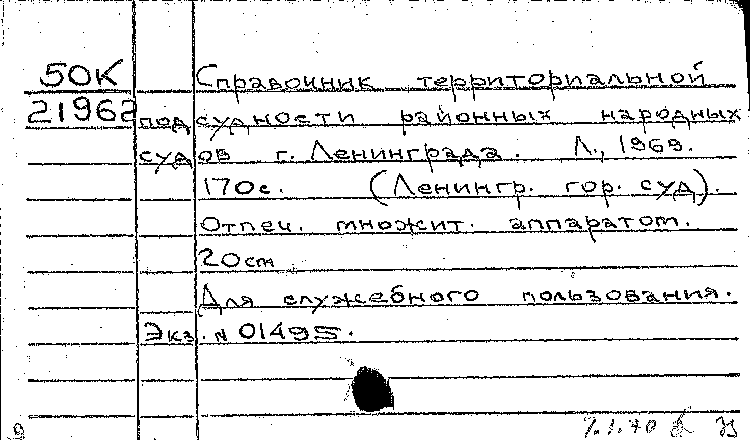 50К Справочник территориальной
21962 подсудности районных народных
судов г. Ленинграда. Л., 1969.
170с. (Ленингр. гор. суд).
Отпеч. множит. аппаратом.
20см
Для служебного пользования.
Экз. N 01495.
9 7.1.70